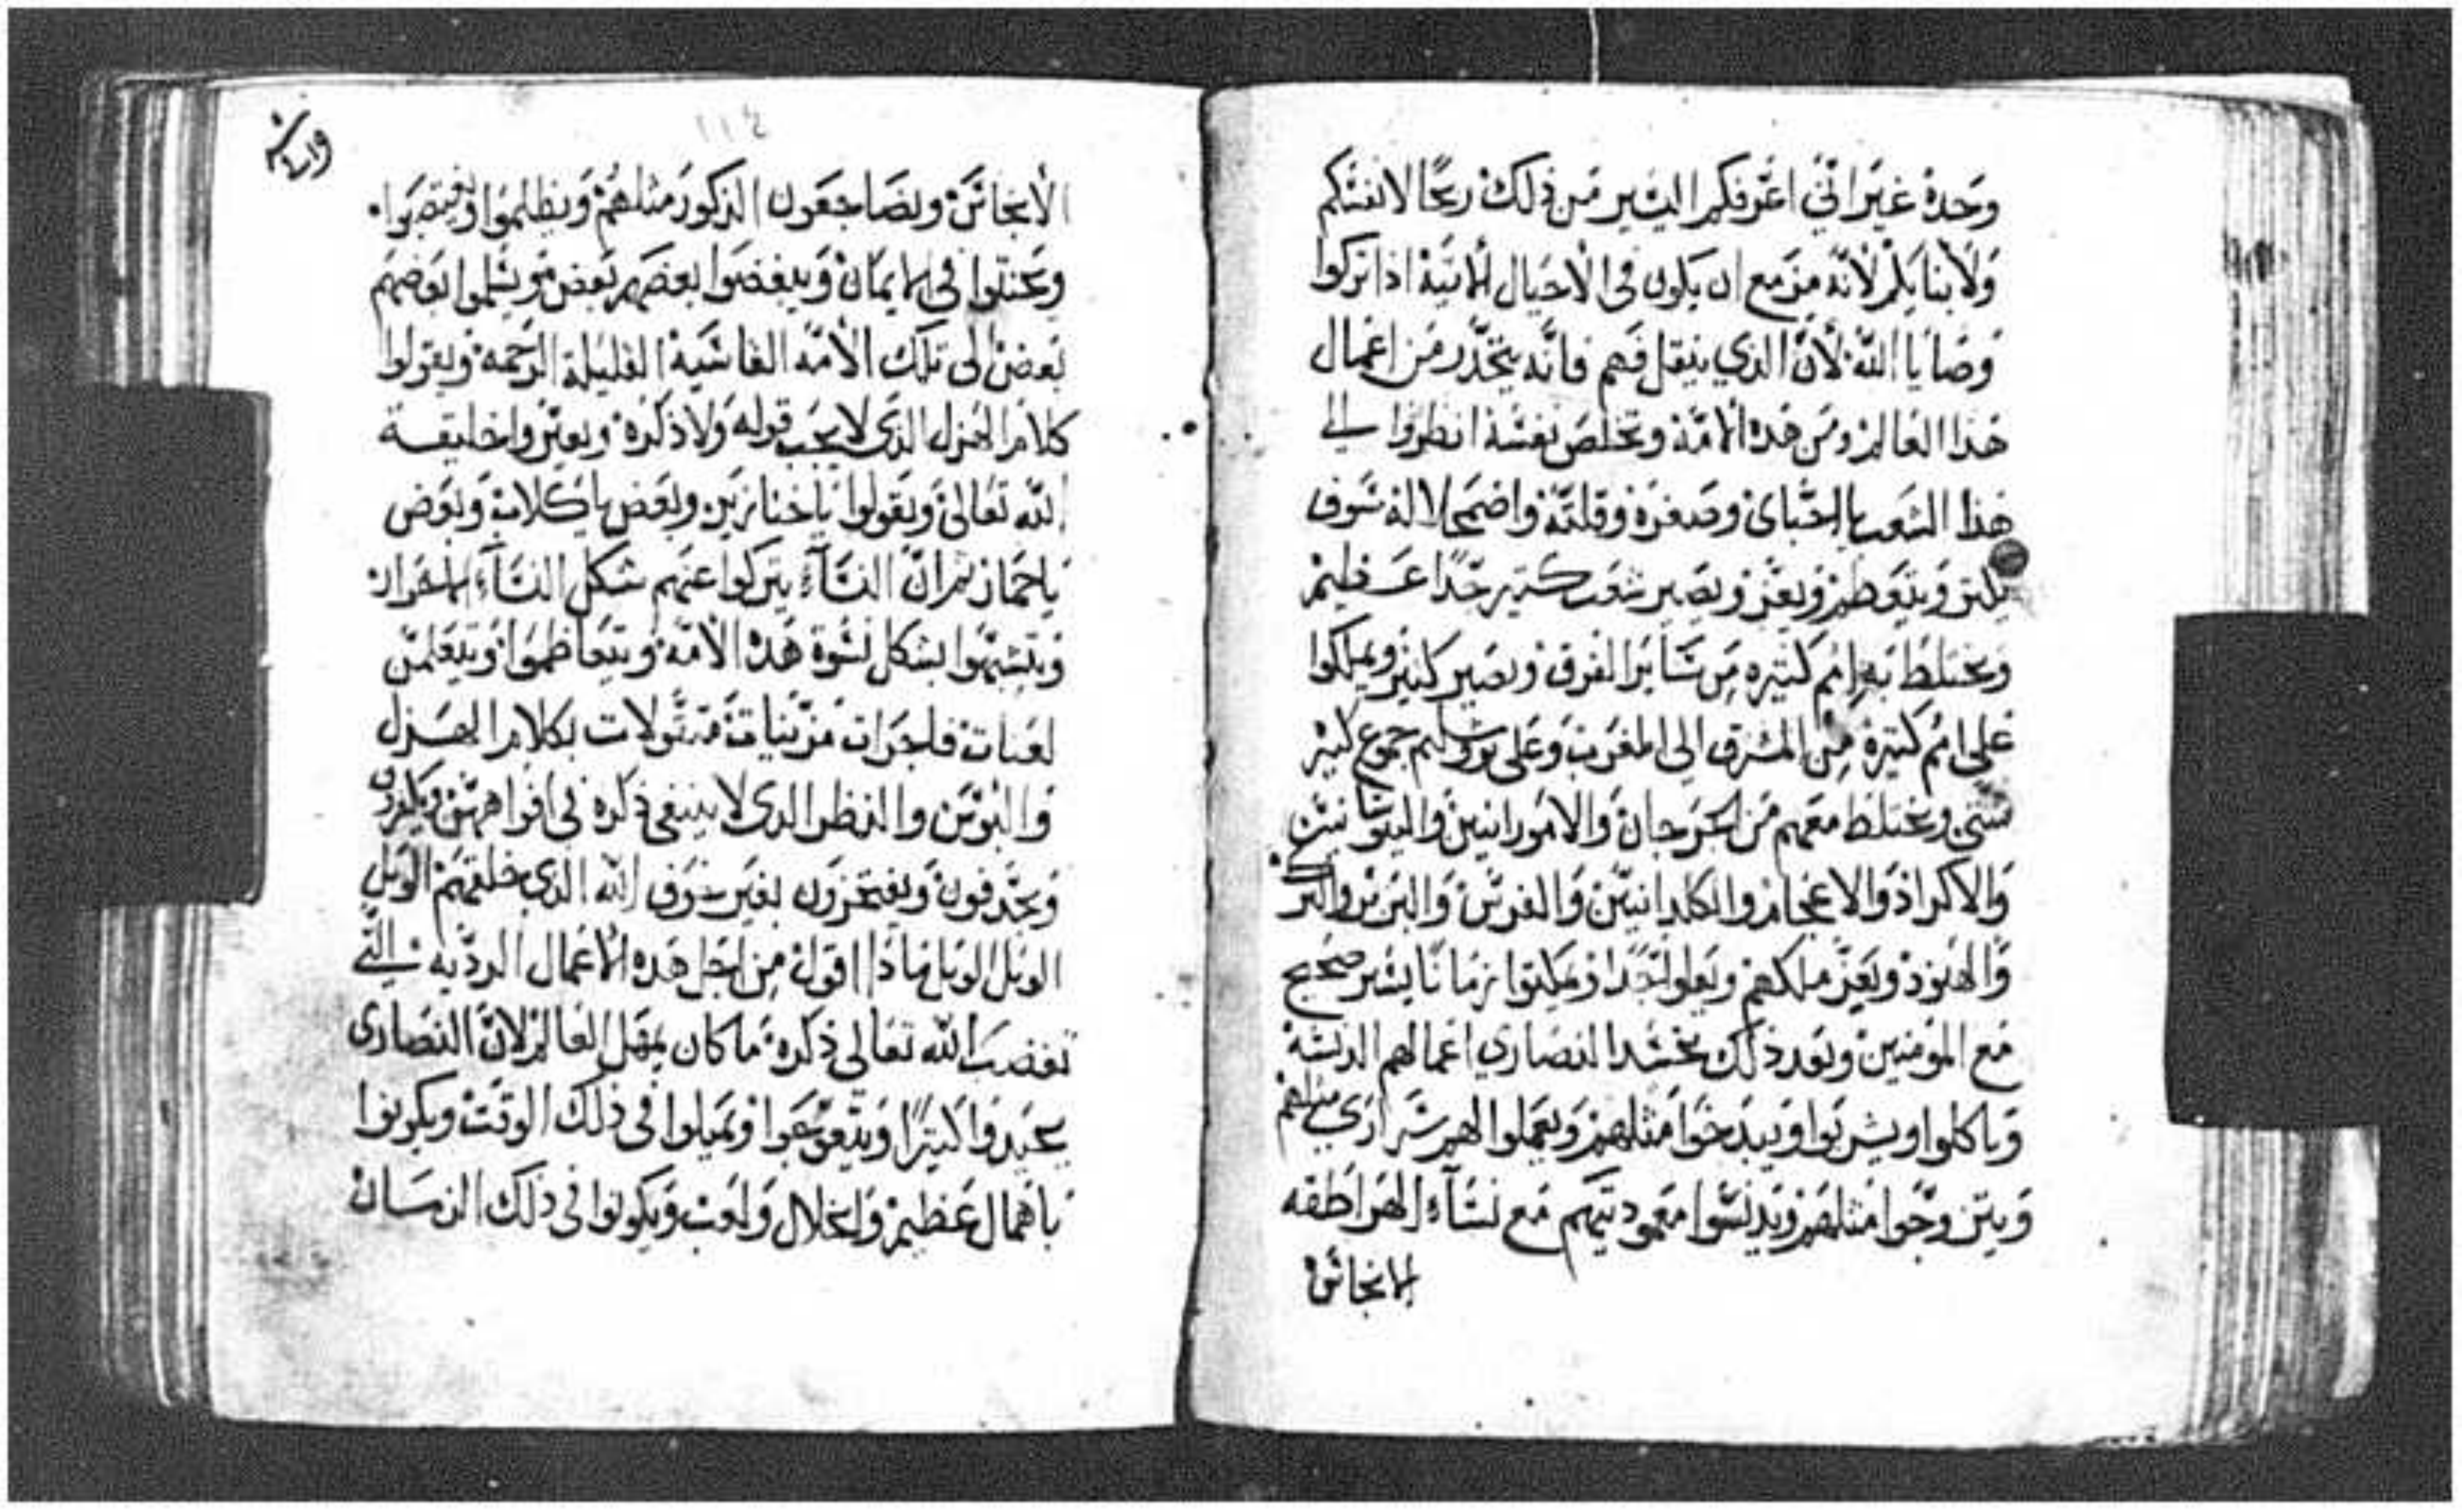 وحده غير انني اعرفكم اليسير من ذلك ربحًا لانفسكم
ولابنايكم لانه مزمع ان يكون في الاجيال الاتية اذا تركوا
وصايا الله لأنّ الذي ينقل فهم فانه يتحذر من اعمال
هذا العالم ومن هذه الامّة ويخلص نفسه انظروا الي
هذا الشعب يا احباي وصغره وقلته واضمحلاله سوف
يكثر ويتعظم ويعز ويصير شعب كثير جدًا عظيم
ويختلط به امم كثيره من سائر الفرق ويصير كثير ويملكوا
علي امم كثيرة من المشرق الي المغرب وعلى يروشليم جموع كثير
شتي ويختلط معهم من الجرجان والامورانيين واليونانيين
والاكراد والاعجام والكلدانيين والفرس والبربر والترك
والهنود ويعز ملكهم ويعلوا جدا ويمكثوا زمانًا يسير صحيح
مع المومنين وبعد ذلك يحسد النصاري اعمالهم الدنسة
وياكلوا ويشربوا ويبدخوا مثلهم ويعملوا لهم سراري مثلهم
ويتزوجوا مثلهم ويدنسوا معموديتهم مع نسآء الهراطقه
الانجاس
١١٤
الأنجاس ويضاجعون الذكور مثلهم ويظلموا ويغتصبوا
في الايمان ويبغضوا بعضهم بعض ويسلموا بعضهم
بعض الى تلك الامّه القاسية القليلة الرحمة ويقولوا
كلام الهزل الذي لا يجب قوله ولا ذكره ويعيروا خليقة
الله تعالى ويقولوا يا خنازير وبعض يا كلاب وبعض
يا حمار ثم انّ النسآء يتركوا عنهم شكل النسآء الاحرار
ويتشبهوا بشكل نسوة هذه الأمة ويتعاظموا
لعنات فاجرات مزينات بكلام الهزل
والنظر الذي لا ينبغي ذكره في افواههن
ويجدفون ويفتخرون بغير خوف الله الذي خلقهم الويل
الويل الويل ماذا اقول من اجل هذه الأعمال الرديه التي
تغضب الله تعالى ذكره ما كان يمهل العالم لانّ النصارى
يحيدوا كثيرًا ويتعوجوا ويميلوا في ذلك الوقت ويكونوا
باهمال عظيم وانحلال ولعب ويكونوا في ذلك الزمان